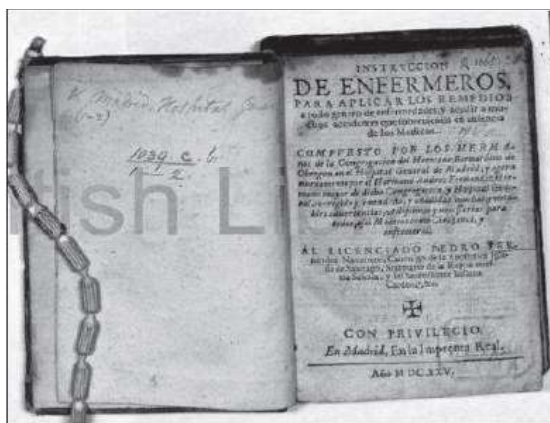 K Madrid. Hospital
1039. c.
2
INSTRVCCION
DE ENFERMEROS,
PARA APLICAR LOS REMEDIOS
a todo genero de enfermedades, y acudir a mu-
chos accidentes que sobrevienen en ausencia
de los Medicos.
COMPVESTO POR LOS HERMA
nos de la Congregacion del Hermano Bernardino de
Obregon, en el Hospital General de Madrid; y agora
nuevamente por el Hermano Andres Fernandez, Her-
mano mayor de dicha Congregacion, y Hospital Gene-
ral, corregido y enmendado, y añadidas muchas
para
AL LICENCIADO PEDRO FER-
nandez Navarrete, Canonigo de la Apostolica Igle-
sia de Santiago, Secretario de la Reyna
y del Serenissimo Infante
Cardenal, &c.
CON PRIVILEGIO,
En Madrid, En la Imprenta Real,
Año M DC. XXV.